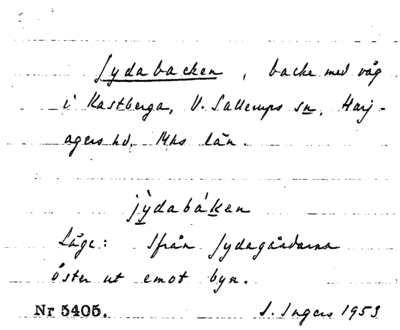 Jydabacken, backe med väg
i Kastberga, V. Sallerups sn, Harj-
agers hd, Mhs län.
jỳdabákan
Läge: Ifrån Jydagårdarna
öster ut emot byn.
Nr 5405. I. Ingers 1953